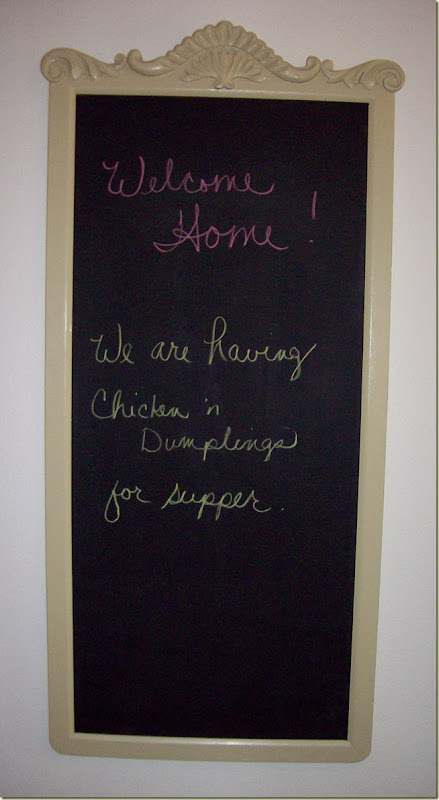 Welcome
Home!
We are having
Chicken 'n
Dumplings
for supper.